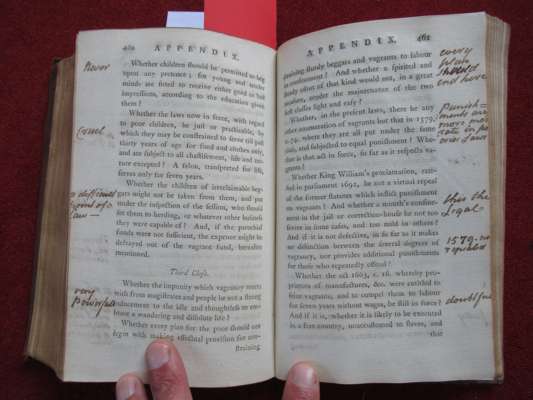 460 APPENDIX.
Never
Whether children should be permitted to beg
upon any pretence; for young and tender
minds are fitted to receive either good or bad
impressions, according to the education given
them?
Whether the laws now in force, with regard
to poor children, be just or practicable, by
which they may be constrained to serve till past
thirty years of age for food and clothes only,
and are subject to all chastisement, life and
excepted? A felon, transported for life,
serves only for seven years.
Cruel
Whether the children of irreclaimable beg-
gars might not be taken from them, and put
under the inspection of the
for them to herding, or whatever other business
they were capable of? And, if the parochial
funds were not sufficient, the expence might be
defrayed out of the vagrant fund, hereafter
mentioned.
Third Class.
Whether the impunity which vagrancy meets
with from magistrates and people be not a strong
inducement to the idle and thoughtless to em-
brace a wandering and dissolute life?
very
Powerful
Whether every plan for the poor should not
begin with making effectual provision for con-
straining
APPENDIX. 461
straining sturdy beggars and vagrants to labour
in confinement? And whether a spirited and
steady effort of that kind would not, in a great
measure, render the management of the two
classes light and easy?
every
should
end here
Whether, in the present laws, there be any
other enumeration of vagrants but that in 1579,
c. 74. where they are all put under the same
class, and subjected to equal punishment? Whe-
ther is that act in force, so far as it respects va-
grants?
Punish=
Whether King William's proclamation, rati-
fied in parliament 1692, be not a virtual repeal
of the former statutes which inflict punishment
on vagrants? And whether a month's confine-
ment in the jail or correction-house be not too
severe in some cases, and too mild in others?
And if it is not defective, in so far as it makes
no distinction between the several degrees of
vagrancy, nor provides additional punishments
for those who repeatedly offend?
this the
Legal
1579. no
repealed
Whether the act 1663, c. 16. whereby pro-
prietors of manufactures, &c. were entitled to
seize vagrants, and to compel them to labour
for seven years without wages, be still in force?
And if it is, whether it is likely to be executed
in a free country, unaccustomed to slaves, and
that
doubtful